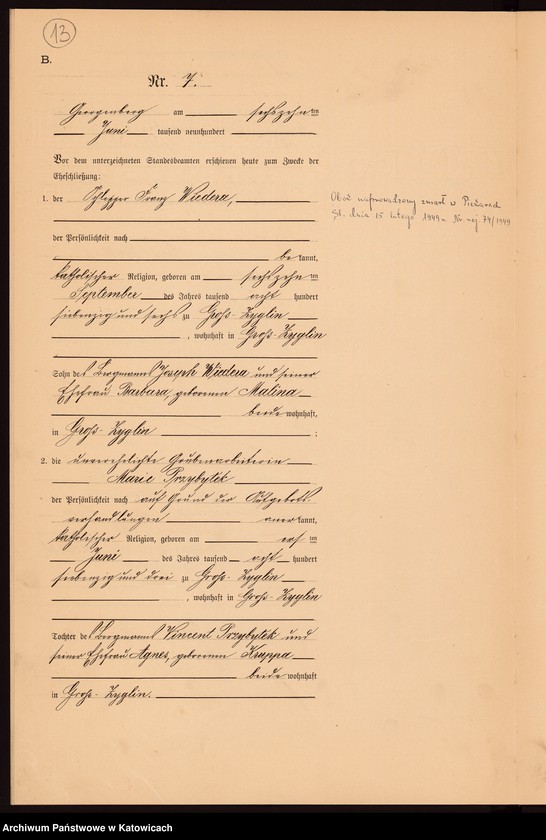 13
B.
Nr. 7.
Georgenberg am sechszehnten
Juni tausend neunhundert
Vor dem unterzeichneten Standesbeamten erschienen heute zum Zwecke der
Eheschließung:
1. der Schlepper Franz Wiedera,
der Persönlichkeit nach
bekannt,
katholischer Religion, geboren am sechszehnten
September des Jahres tausend acht hundert
siebenzig und sechs zu Groß-Zyglin
, wohnhaft in Groß-Zyglin
Sohn des Bergmanns Joseph Wiedera und seiner
Ehefrau Barbara, geborenen Malina
beide wohnhaft,
in Groß-Zyglin ;
2. die unverehelichte Grubenarbeiterin
Marie Przybytek
der Persönlichkeit nach auf Grund der Aufgebots-
verhandlungen anerkannt,
katholischer Religion, geboren am ersten
Juni des Jahres tausend acht hundert
siebenzig und drei zu Groß-Zyglin
, wohnhaft in Groß-Zyglin
Tochter des Bergmanns Vincent Przybytek und
seiner Ehefrau Agnes, geborenen Krappa
beide wohnhaft
in Groß-Zyglin.
zmarł w
dnia 15 lutego 1949 r. Nr. rej. 74/1949
Archiwum Państwowe w Katowicach